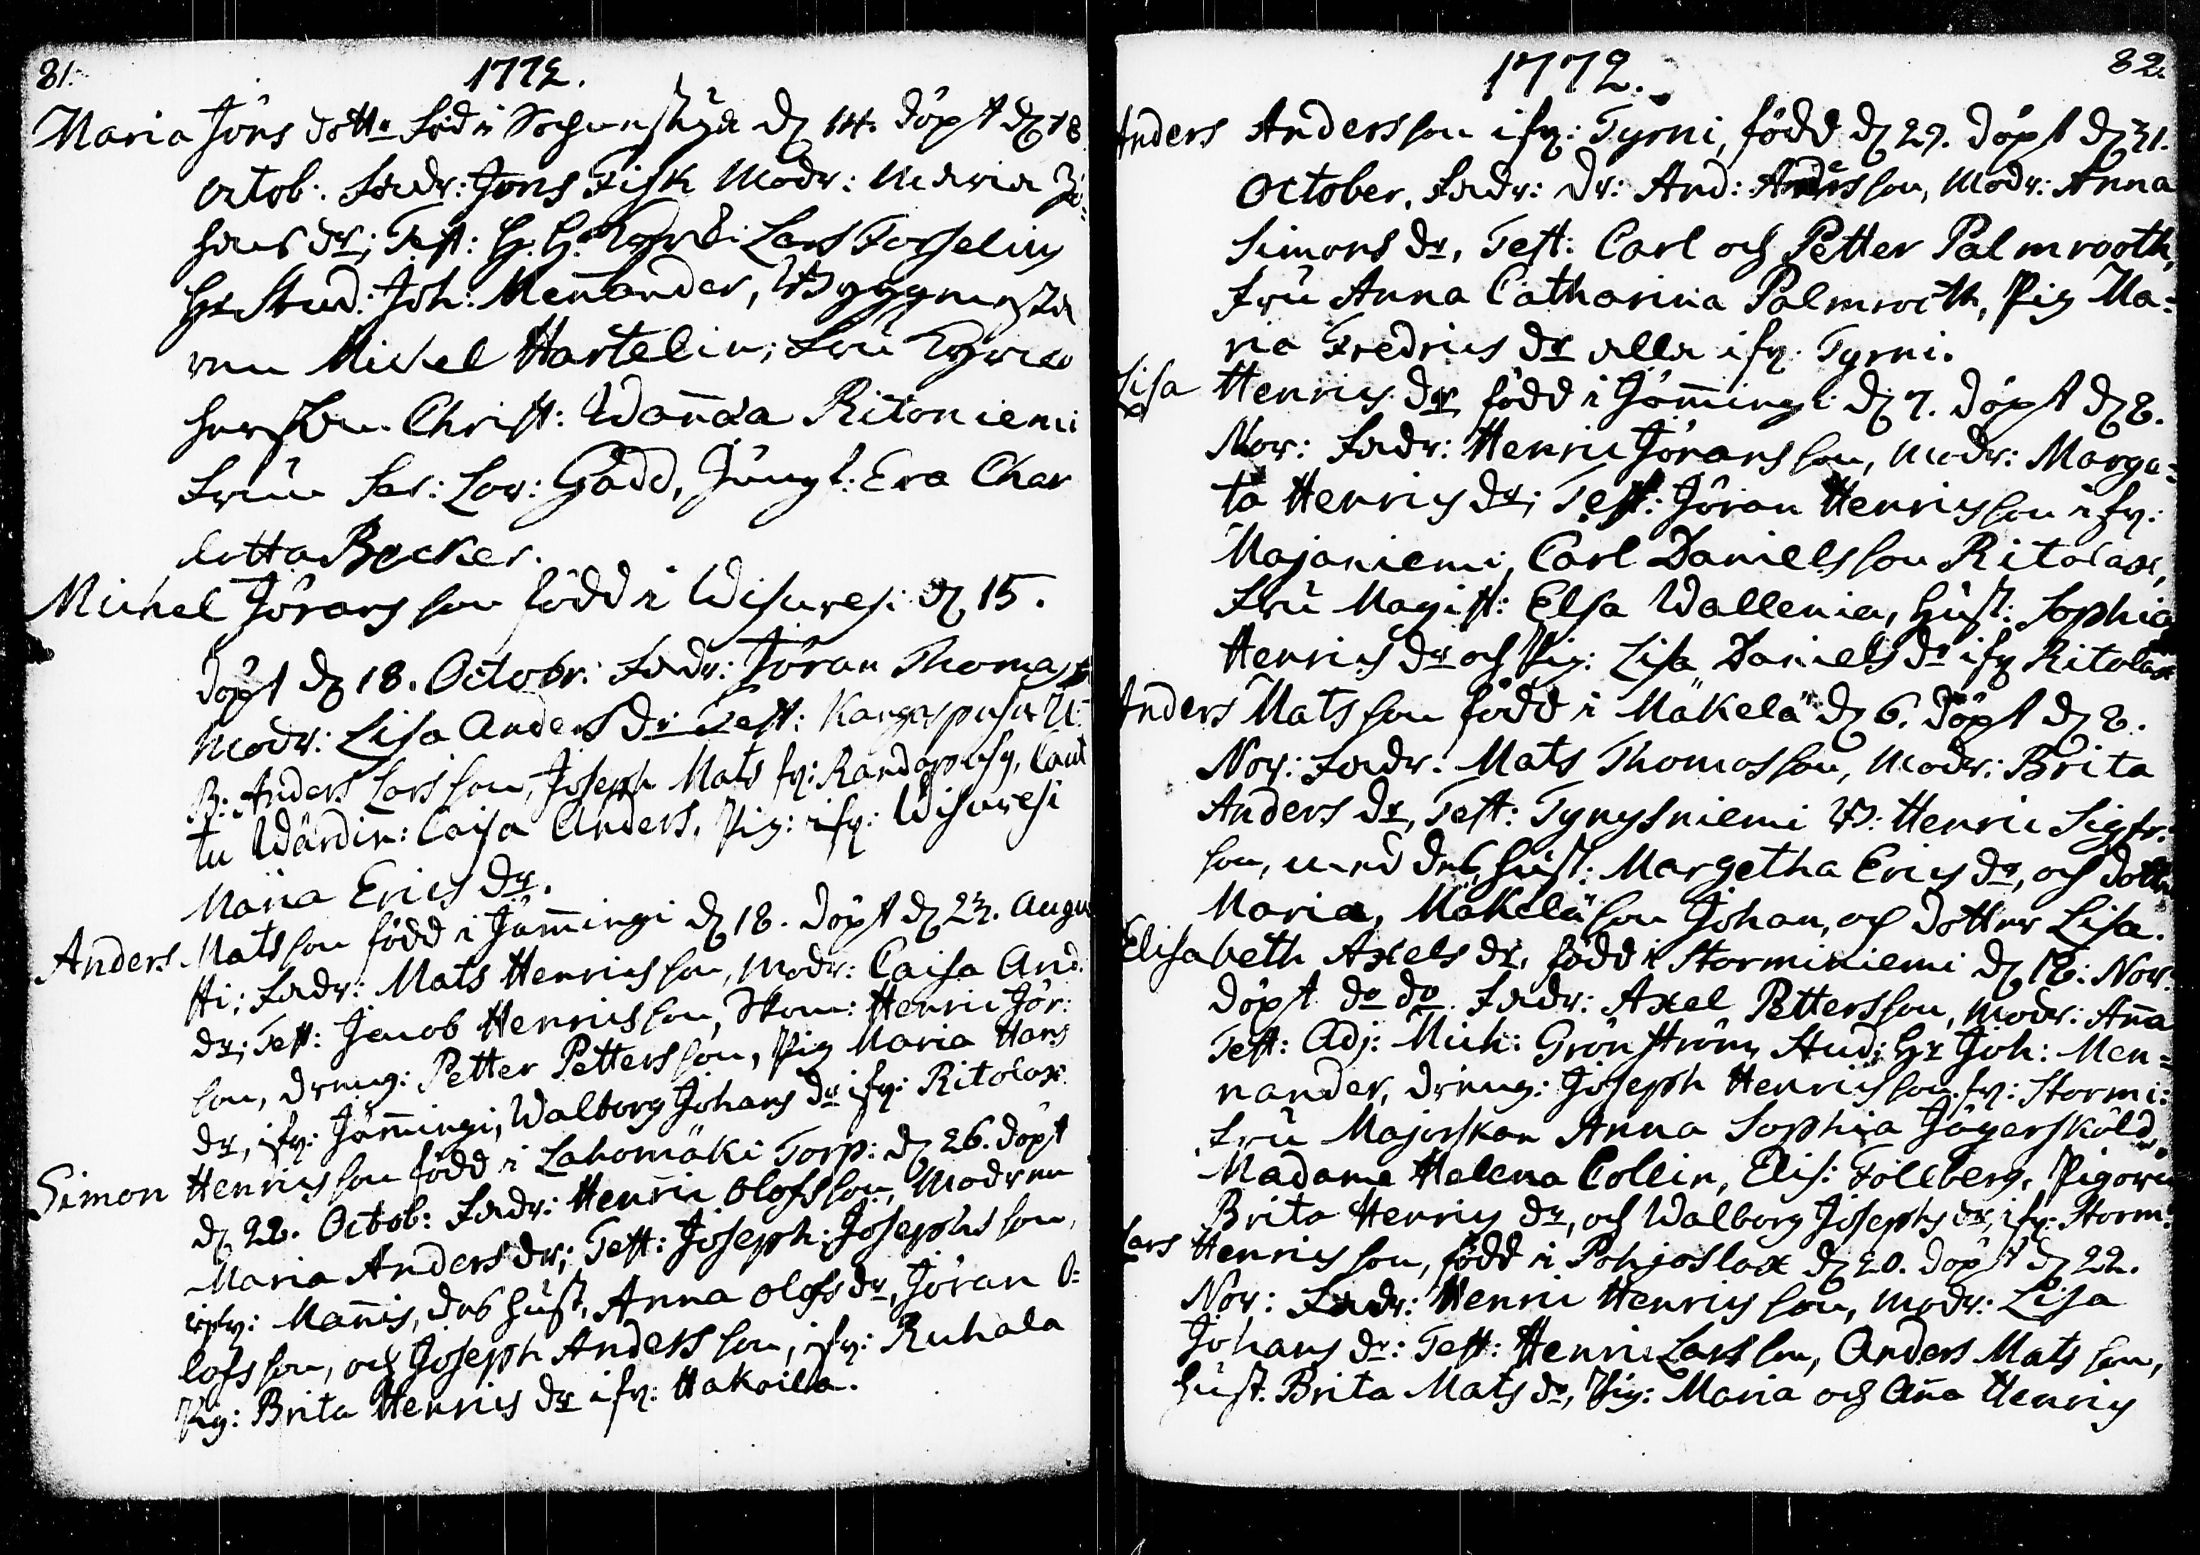 81.
1772.
Maria Jöns dott. född i Sockenstuga d. 14. döpt d. 18
octob: Fadr: Jöns Fisk Modr: Maria Jo=
hans dr; Test: H. H. Kyrkh: Lars Forselius
Hr Stud: Joh: Mennander, Byggmesta
ren Mickel Hartelin; Fru Kyrko
herskan Christ: Wanæa Ritoniemi
Fruu Sar: Lov: Gadd, Jungf: Eva Char
lotta Becker.
Michel Jörans son född i Wisuvesi d. 15.
döpt d. 18. Octobr: Fadr: Jöran Thomas
Modr: Lisa Anders dr Test: Kangaspusu U:
B: Anders Lars son, Joseph Mats fr: Randapusu, Caut
tu Wärdin: Caisa Anders, Pig: ifr: Wisuvesi
Maria Erics dr.
Anders Mats son född i Jämmingi d. 18. döpt d. 23. Augu
sti; Fadr: Mats Henrics son, Modr: Caisa And.
dr; Test: Jacob Henrics son, Skom: Henric Jör:
son, dreng: Petter Petters son, Pig Maria Hans
dr, ifr: Jämmingi, Walborg Johans dr ifr: Ritolax.
Simon Henrics son född i Lahomäki Torp: d. 26. döpt
d. 22. Octob: Fadr: Henric Olofs son, Modren
Maria Anders dr; Test: Joseph Josephs son,
ifr: Mannis, des hust, Anna Olofs dr, Jöran O=
lofs son, och Joseph Anders son, ifr: Ruhala
Pig: Brita Henrics dr ifr: Hakoila.
1772.
82.
Anders Anders son ifr: Tyrni, född d. 29. döpt d. 31.
October, Fadr: dr: And: Anders son, Modr: Anna
Simons dr, Test: Carl och Petter Palmrooth,
Fru Anna Catharina Palmrooth, Pig Ma=
ria Fredrics dr alla ifr: Tyrni.
Lisa Henrics dr född i Jämmingi d. 7. döpt d. 8.
Nov: Fadr: Henric Jörans son, Modr: Marga=
ta Henrics dr; Test: Jöran Henrics son ifr:
Majaniemi, Carl Daniels son Ritolax,
Fru Magist: Elsa Wallenia, Hust: Sophia
Henrics dr och Pig: Lisa Daniels dr ifr Ritolax
Anders Mats son född i Mäkelä d. 6. döpt d. 8.
Nov: Fadr: Mats Thomas son, Modr: Brita
Anders dr, Test: Tynysniemi B: Henric Sigfr:
son, med des hust: Margetha Erics dr, och dottr
Maria, Mäkelä son Johan, och dotter Lisa.
Elisabeth Axels dr, född i Storminiemi d. 18: Nov:
döpt do do. Fadr: Axel Petters son, Modr: Anna
Test: Adj: Mich: Grönström, Stud: Hr Joh: Men=
nander, dreng: Joseph Henrics son fr: Stormi:
Fru Majorskan Anna Sophia Jägerskiöld,
Madame Helena Collin, Elis: Föllberg, Pigorn
Brita Henrics dr, och Walborg Josephs dr, ifr: Storm:
Lars Henrics son, född i Pohjoslax d. 20. döpt d. 22.
Nov: Fadr: Henric Henrics son, Modr: Lisa
Johans dr: Test: Henric Lars son, Anders Mats son,
hust. Brita Mats dr, Pig: Maria och Ana Henrics